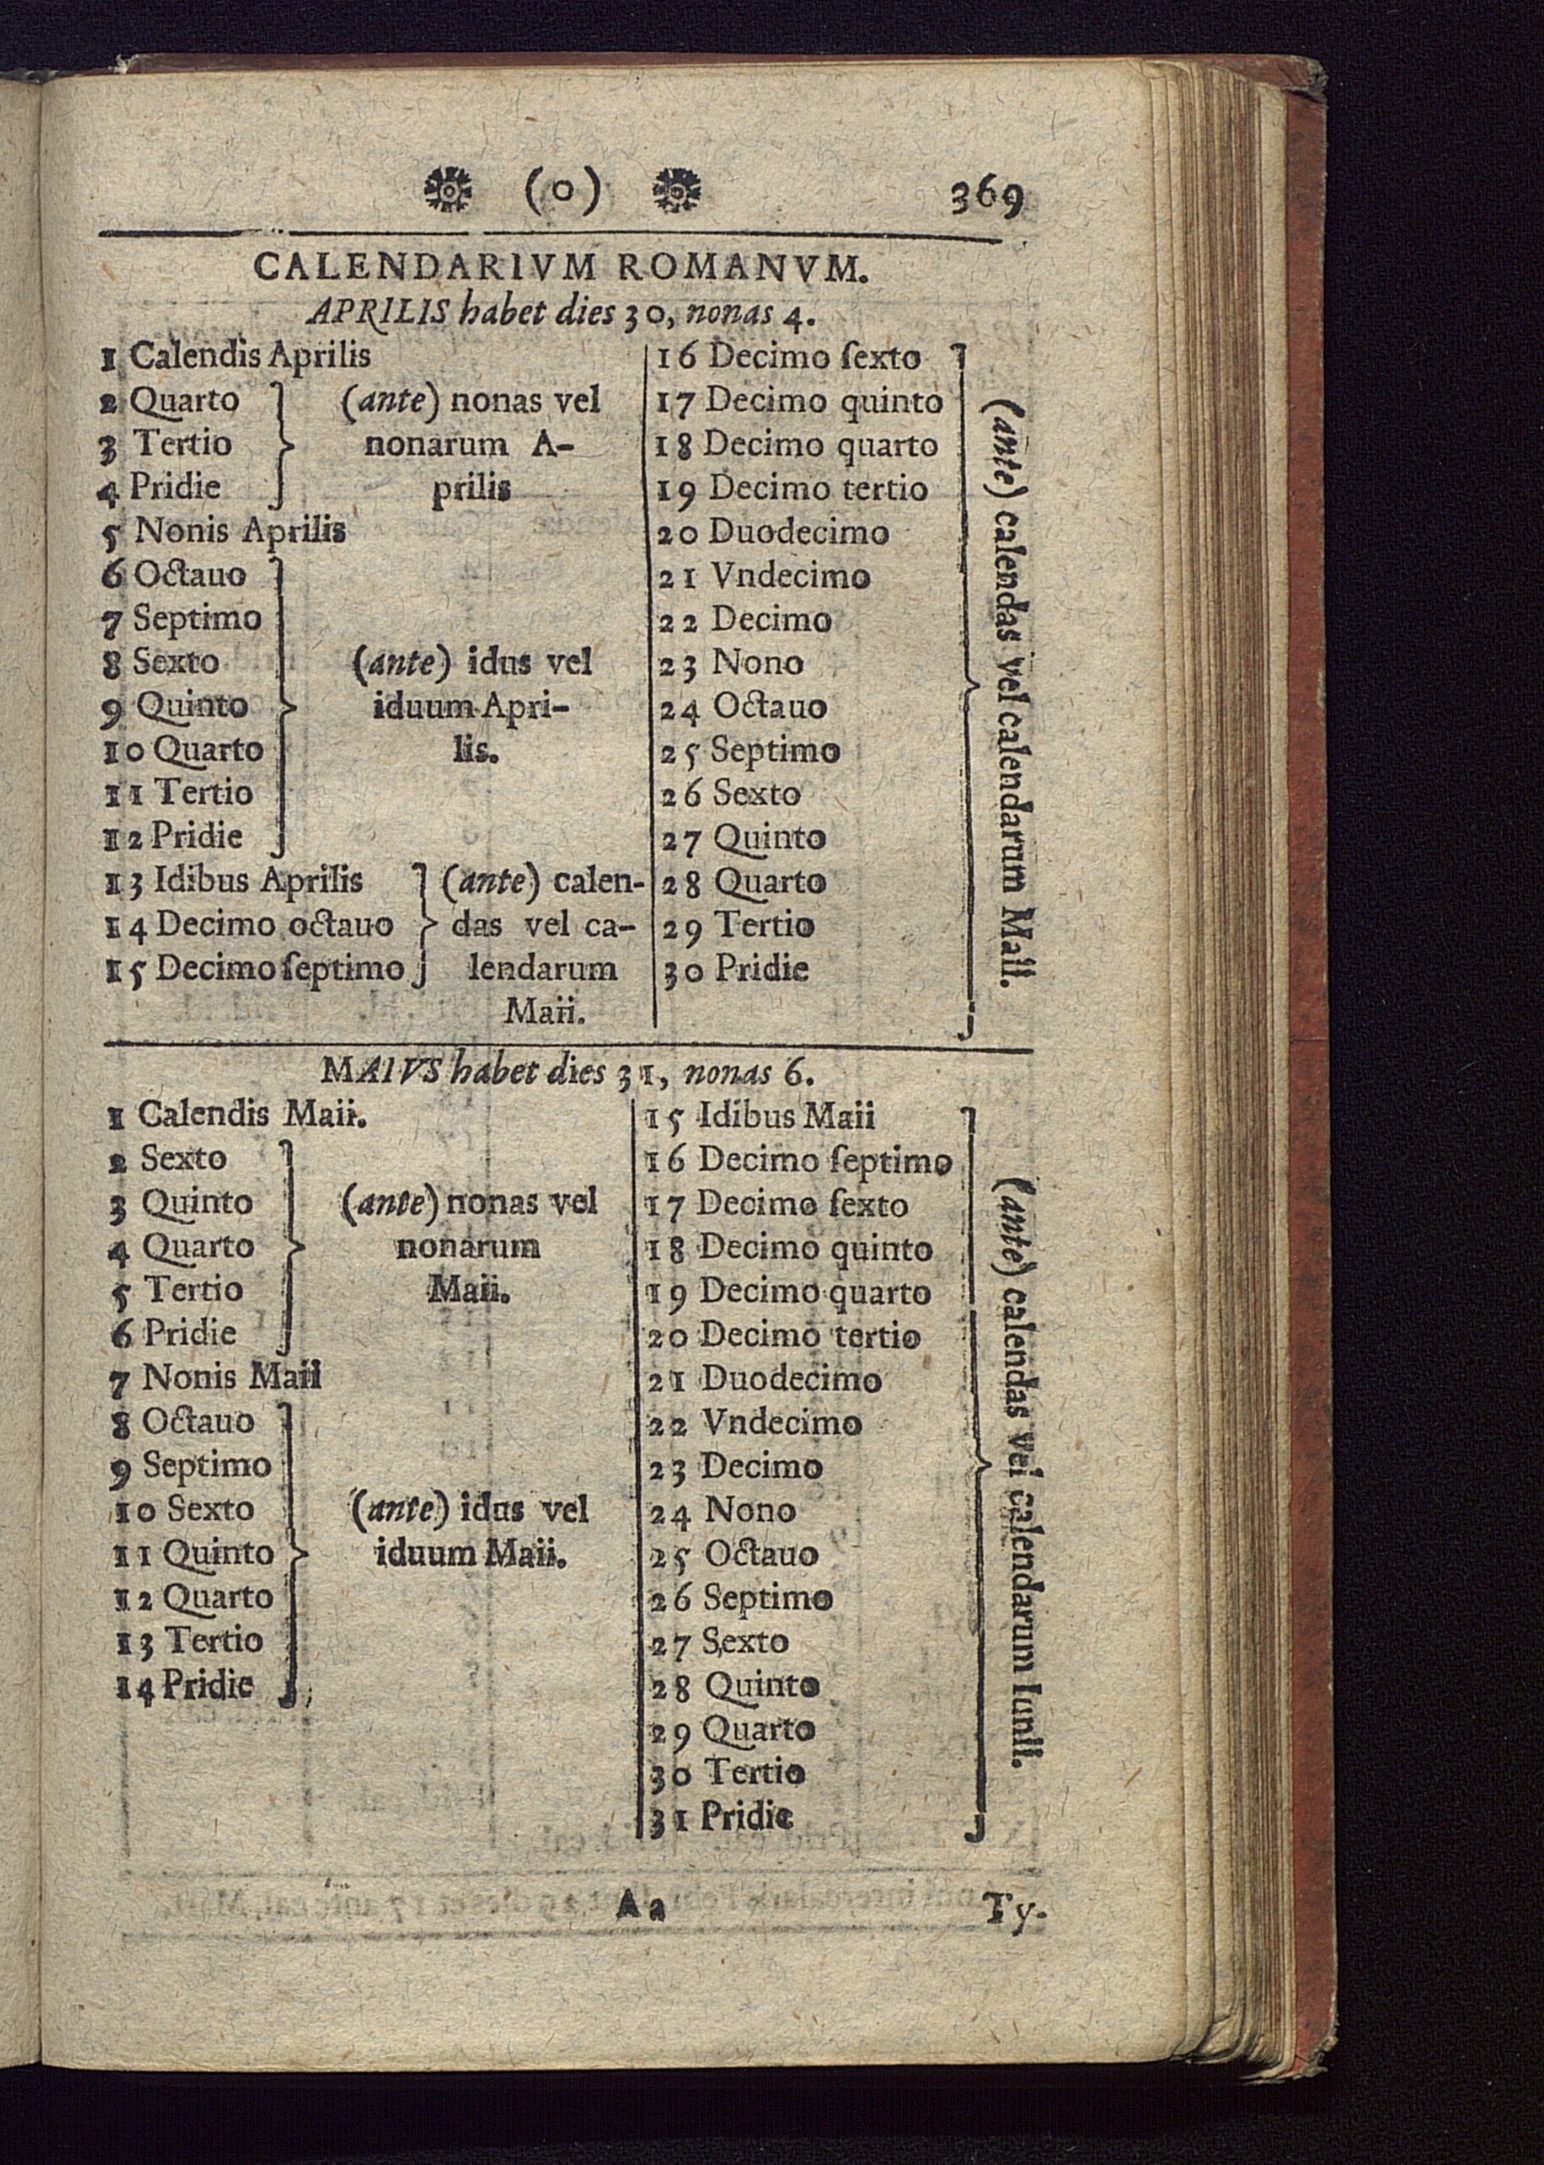 (o) 369
CALENDARIVM ROMANVM.
APRILIS habet dies 30, nonas 4.
1 Calendis Aprilis
2 Quarto
3 Tertio
4 Pridie
(ante) nonas vel
nonarum A-
prilis
5 Nonis Aprilis
6 Octauo
7 Septimo
8 Sexto
9 Quinto
10 Quarto
11 Tertio
12 Pridie
(ante) idus vel
iduum Apri-
lis.
13 Idibus Aprilis
14 Decimo octauo
15 Decimo ſeptimo
(ante) calen-
das vel ca-
lendarum
Maii.
16 Decimo ſexto
17 Decimo quinto
18 Decimo quarto
19 Decimo tertio
20 Duodecimo
21 Vndecimo
22 Decimo
23 Nono
24 Octauo
25 Septimo
26 Sexto
27 Quinto
28 Quarto
29 Tertio
30 Pridie
(ante) calendas vel calendarum Maii.
MAIVS habet dies 31, nonas 6.
1 Calendis Maii.
2 Sexto
3 Quinto
4 Quarto
5 Tertio
6 Pridie
(ante) nonas vel
nonarum
Maii.
7 Nonis Maii
8 Octauo
9 Septimo
10 Sexto
11 Quinto
12 Quarto
13 Tertio
14 Pridie
(ante) idus vel
iduum Maii.
15 Idibus Maii
16 Decimo ſeptimo
17 Decimo ſexto
18 Decimo quinto
19 Decimo quarto
20 Decimo tertio
21 Duodecimo
22 Vndecimo
23 Decimo
24 Nono
25 Octauo
26 Septimo
27 Sexto
28 Quinto
29 Quarto
30 Tertio
31 Pridie
(ante) calendas vel calendarum Iunii.
Aa Ty-